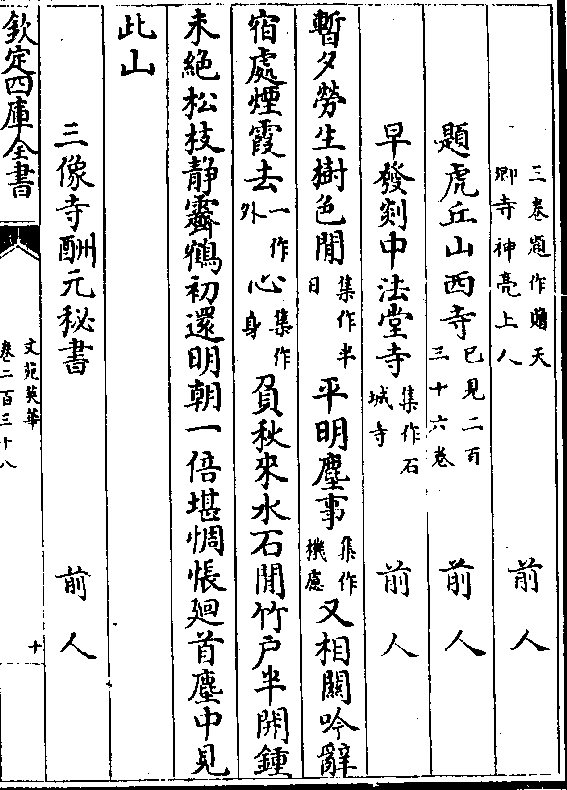 三卷題作贈天
鄉寺神亮上人　前人
題虎丘山西寺　已見二百
三十六卷　前人
早發剡中法堂寺　集作石
城寺　前人
暫夕勞生樹色閒集作半日平明塵事集作機慮又相關吟辭
宿處煙霞去一作外心集作身負秋來水石閒竹户半開鍾
未絶松枝静霽鶴初還明朝一倍堪惆悵廻首塵中見
此山
三像寺酬元秘書　前人
欽定四庫全書
文苑英華
卷二百三十八
十